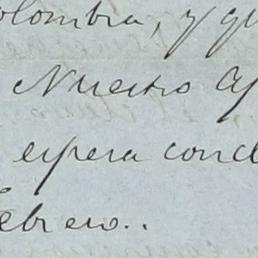 olombia, y qu
Nuestro Aj
espera concl
Febrero..